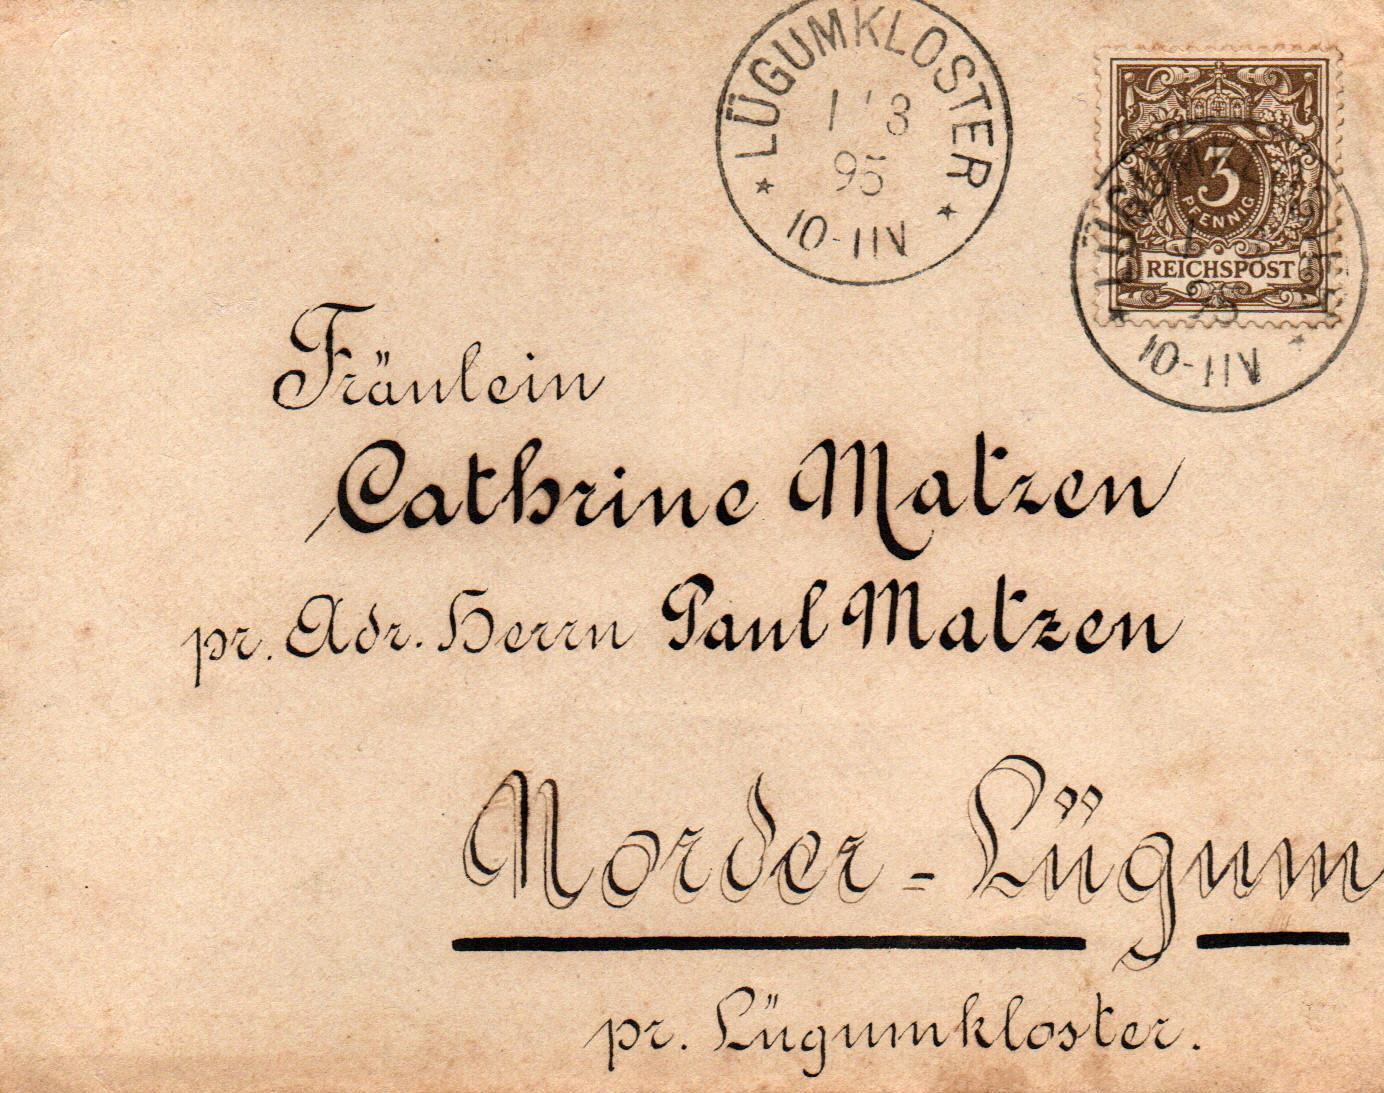 LÜGUMKLOSTER
1 3
95
10-11N
3
PFENNIG
REICHSPOST
10-11N
Fräulein
Cathrine Matzen
pr. Adr. Herrn Paul Matzen
Norder-Lügum
pr. Lügumkloster.